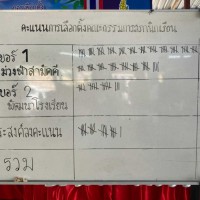 คะแนนการเลือกตั้งคณะกรรมการสภานักเรียน
เบอร์ 1
ม่วงฟ้าสามัคคี
เบอร์ 2
พัฒนาโรงเรียน
ประสงค์ลงคะแนน
รวม